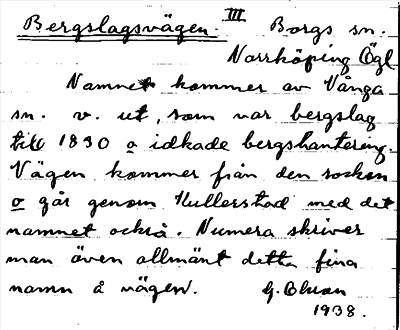 Bergslagsvägen. III Borgs sn.
Norrköping Ögl
Namnet kommer av Vånga
sn. v. ut, som var bergslag
till 1830 o idkade bergshantering.
Vägen kommer från den socken
o går genom Kullerstad med det
namnet också. Numera skriver
man även allmänt detta fina
namn å vägen. G.
1938.